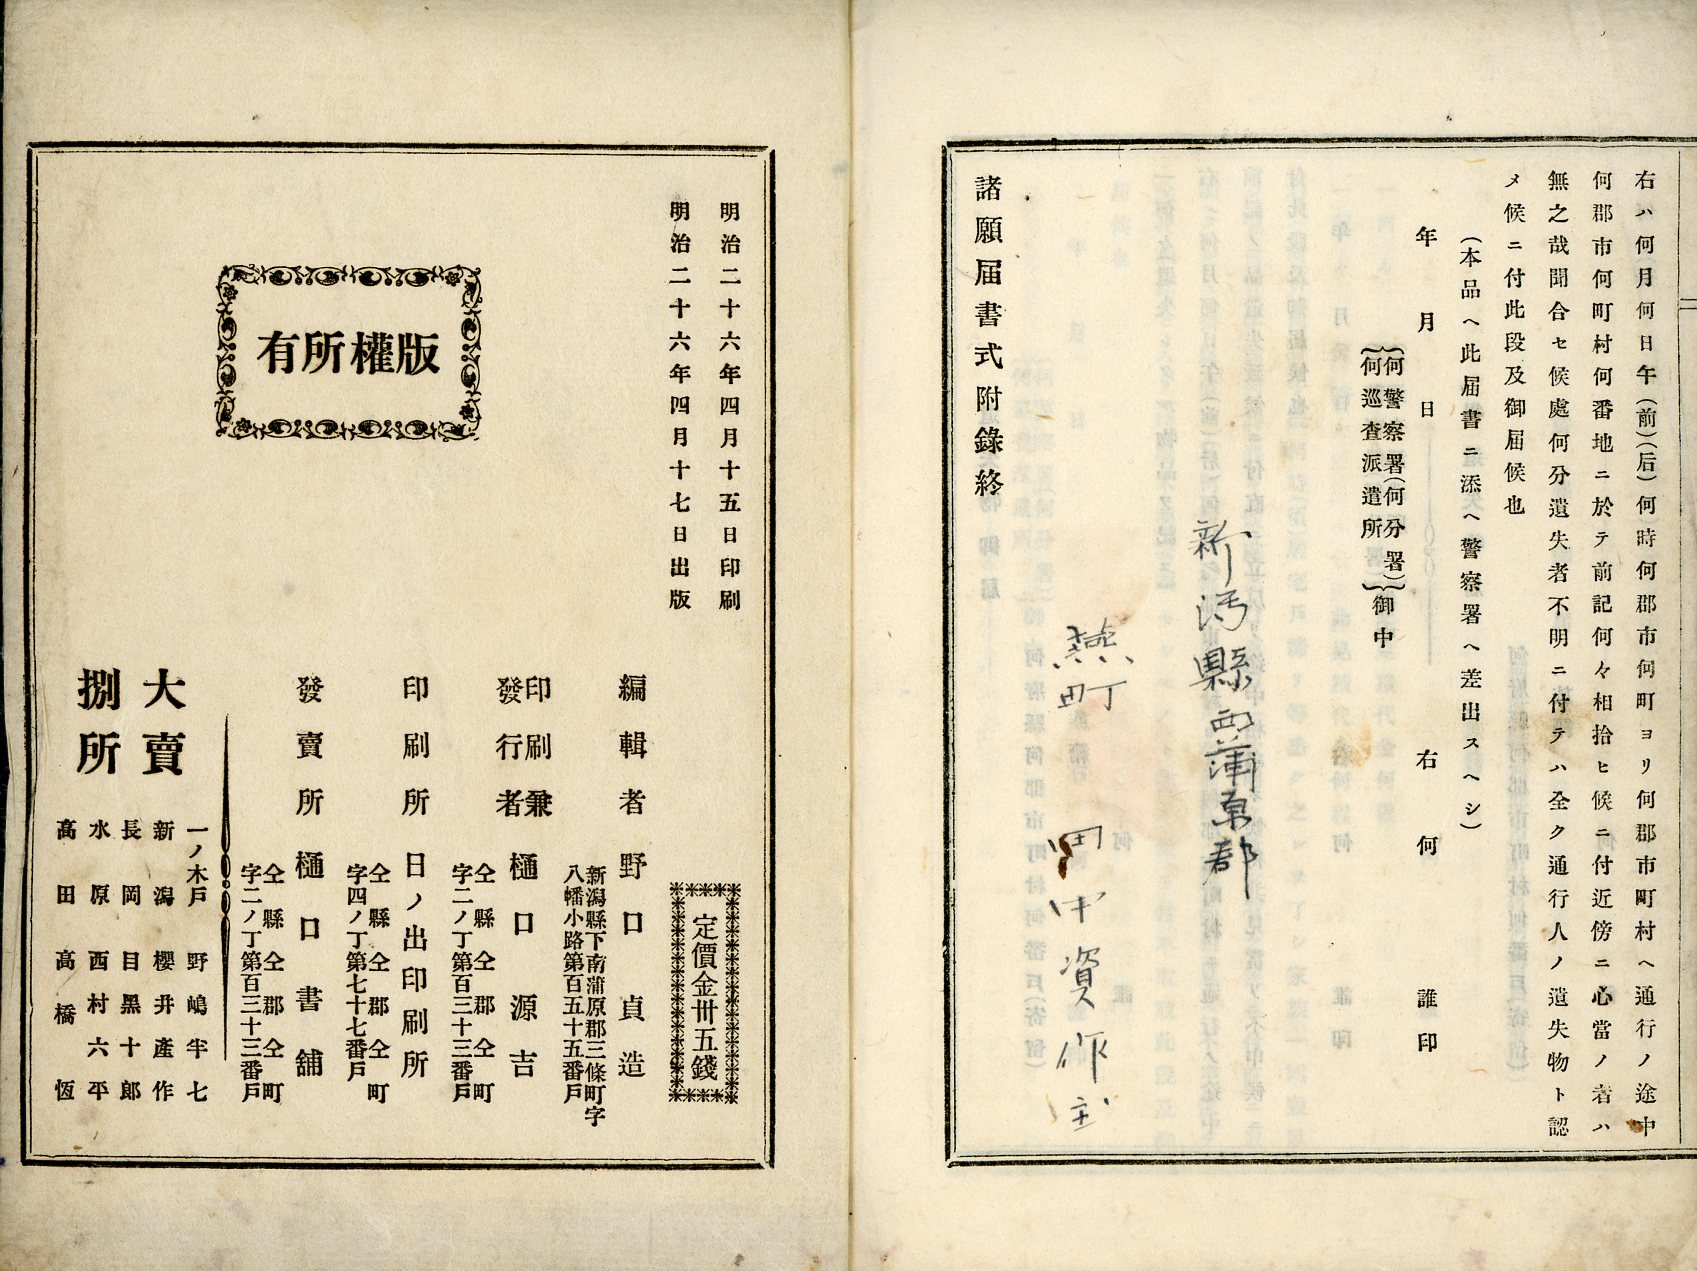 右ハ何月何日午(前)(后)何時何郡市何町ヨリ何郡市町村ヘ通行ノ途中
何郡市何町村何番地ニ於テ前記何々相拾ヒ候ニ付近傍ニ心當ノ者ハ
無之哉聞合セ候處何分遺失者不明ニ付テハ全ク通行人ノ遺失物ト認
メ候ニ付此段及御届候也
(本品ヘ此届書ニ添ヘ警察署ヘ差出スヘシ)
年月日 右何 誰印
何警察署(何分署)
何巡査派遣所
御中
諸願届書式附錄終
新潟縣西蒲原郡
燕町 田中資作
明治二十六年四月十五日印刷
明治二十六年四月十七日出版
版權所有
定價金卅五錢
編輯者 野口貞造
新潟縣下南蒲原郡三條町字
八幡小路第百五十五番戸
印刷兼
發行者 樋口源吉
仝縣仝郡仝町
字二ノ丁第百三十三番戸
印刷所 日ノ出印刷所
仝縣仝郡仝町
字四ノ丁第七十七番戸
發賣所 樋口書舖
仝縣仝郡仝町
字二ノ丁第百三十三番戸
大賣
捌所
一ノ木戸 野嶋半七
新潟 櫻井產作
長岡 目黑十郎
水原 西村六平
高田 高橋恆